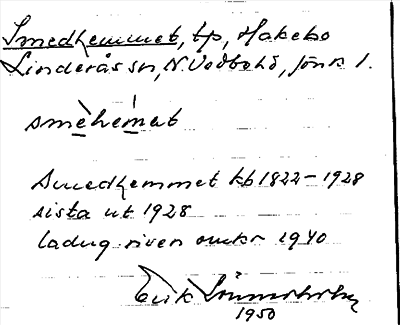 Smedhemmet, tp, Hakebo
Linderås sn, N. Vedbo hd, Jönk l.
smè̱hem̱at
Smedhemmet kb 1822–1928
sista ut 1928
ladug. riven omkr 1940
Erik
1950